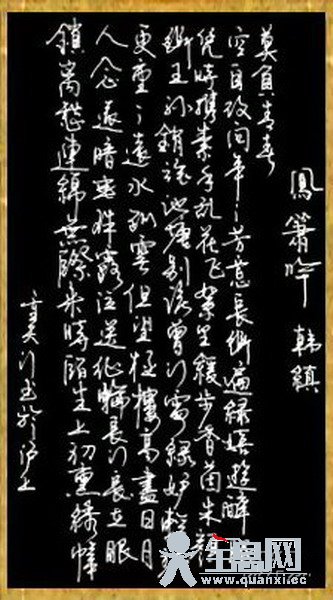 鳳簫吟 韓縝
鎖离愁連綿無際來時陌上初熏綉幃
人念遠暗垂珠露泣送征輪長行長在眼
更重重遠水孤雲但望極樓高盡日目
斷王孫銷魂池塘別後曾行處綠妒輕裙
恁時攜素手乱花飛絮里緩步香茵朱顏
空自改向年年芳意長新遍綠嬉遊醉眼
莫負青春
行书於沪上
www.quanxi.cc